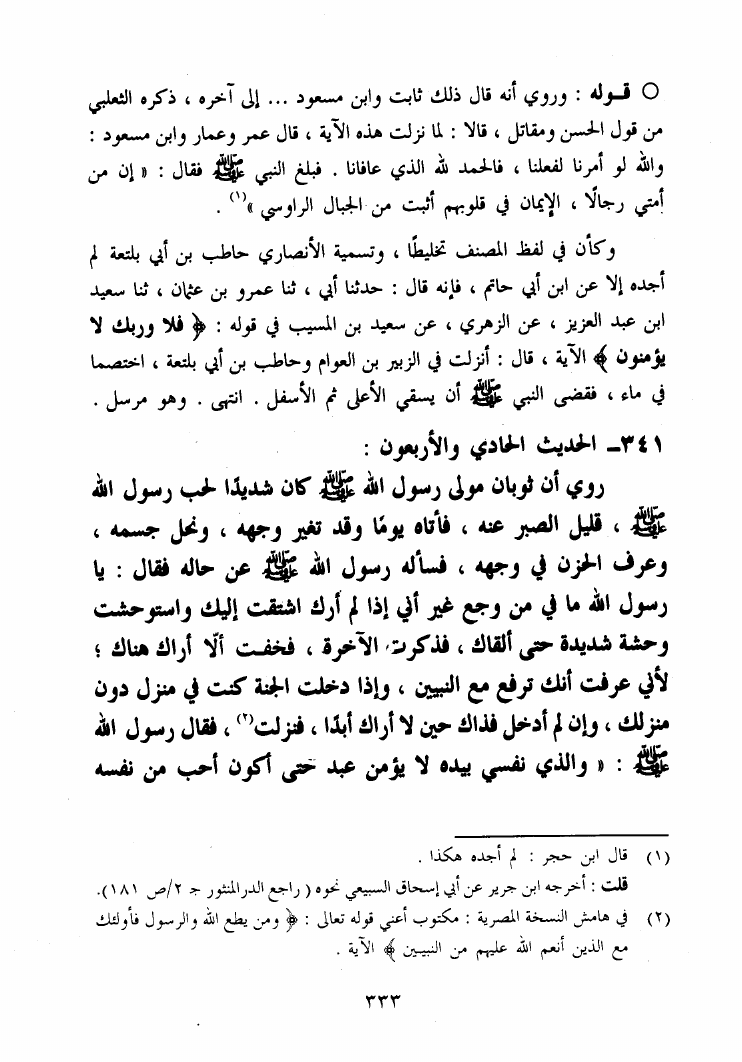 ○ قـوله : وروي أنه قال ذلك ثابت وابن مسعود ... إلى آخره ، ذكره الثعلبي
من قول الحسن ومقاتل ، قالا : لما نزلت هذه الآية ، قال عمر وعمار وابن مسعود :
والله لو أمرنا لفعلنا ، فالحمد لله الذي عافانا . فبلغ النبي ﷺ فقال : « إن من
أمتي رجالًا ، الإيمان في قلوبهم أثبت من الجبال الراوسي »(١) .
وكأن في لفظ المصنف تخليطًا ، وتسمية الأنصاري حاطب بن أبي بلتعة لم
أجده إلا عن ابن أبي حاتم ، فإنه قال : حدثنا أبي ، ثنا عمرو بن عثمان ، ثنا سعيد
ابن عبد العزيز ، عن الزهري ، عن سعيد بن المسيب في قوله : ﴿ فلا وربك لا
يؤمنون ﴾ الآية ، قال : أنزلت في الزبير بن العوام وحاطب بن أبي بلتعة ، اختصما
في ماء ، فقضى النبي ﷺ أن يسقي الأعلى ثم الأسفل . انتهى . وهو مرسل .
٣٤١ـ الحديث الحادي والأربعون :
روي أن ثوبان مولى رسول الله ﷺ كان شديدًا لحب رسول الله
ﷺ ، قليل الصبر عنه ، فأتاه يومًا وقد تغير وجهه ، ونحل جسمه ،
وعرف الحزن في وجهه ، فسأله رسول الله ﷺ عن حاله فقال : يا
رسول الله ما في من وجع غير أني إذا لم أرك اشتقت إليك واستوحشت
وحشة شديدة حتى ألقاك ، فذكرت الآخرة ، فخفت ألّا أراك هناك ؛
لأني عرفت أنك ترفع مع النبيين ، وإذا دخلت الجنة كنت في منزل دون
منزلك ، وإن لم أدخل فذاك حين لا أراك أبدًا ، فنزلت(٢) ، فقال رسول الله
ﷺ : « والذي نفسي بيده لا يؤمن عبد حتى أكون أحب من نفسه
(١) قال ابن حجر : لم أجده هكذا .
قلت : أخرجه ابن جرير عن أبي إسحاق السبيعي نحوه ( راجع الدر المنثور جـ ٢/ص ١٨١).
(٢) في هامش النسخة المصرية : مكتوب أعني قوله تعالى : ﴿ ومن يطع الله والرسول فأولئك
مع الذين أنعم الله عليهم من النبيـين ﴾ الآية .
٣٣٣